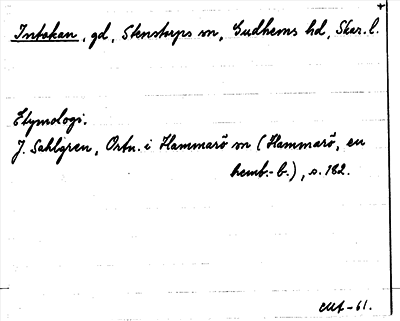 Intakan, gd, Stenstorps sn, Gudhems hd, Skar. l.
Etymologi.
J. Sahlgren, Ortn. i Hammarö sn (Hammarö, en
hemb.-b.), s. 182.
-61.